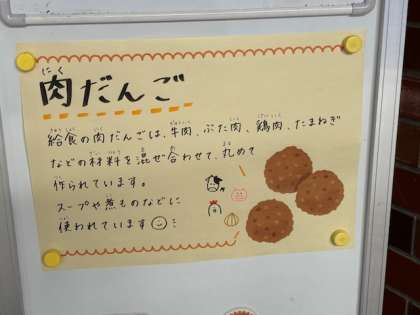 肉だんご
給食の肉だんごは、牛肉、ぶた肉、鶏肉、たまねぎ
などの材料を混ぜ合わせて、丸めて
作られています。
スープや煮ものなどに
使われています